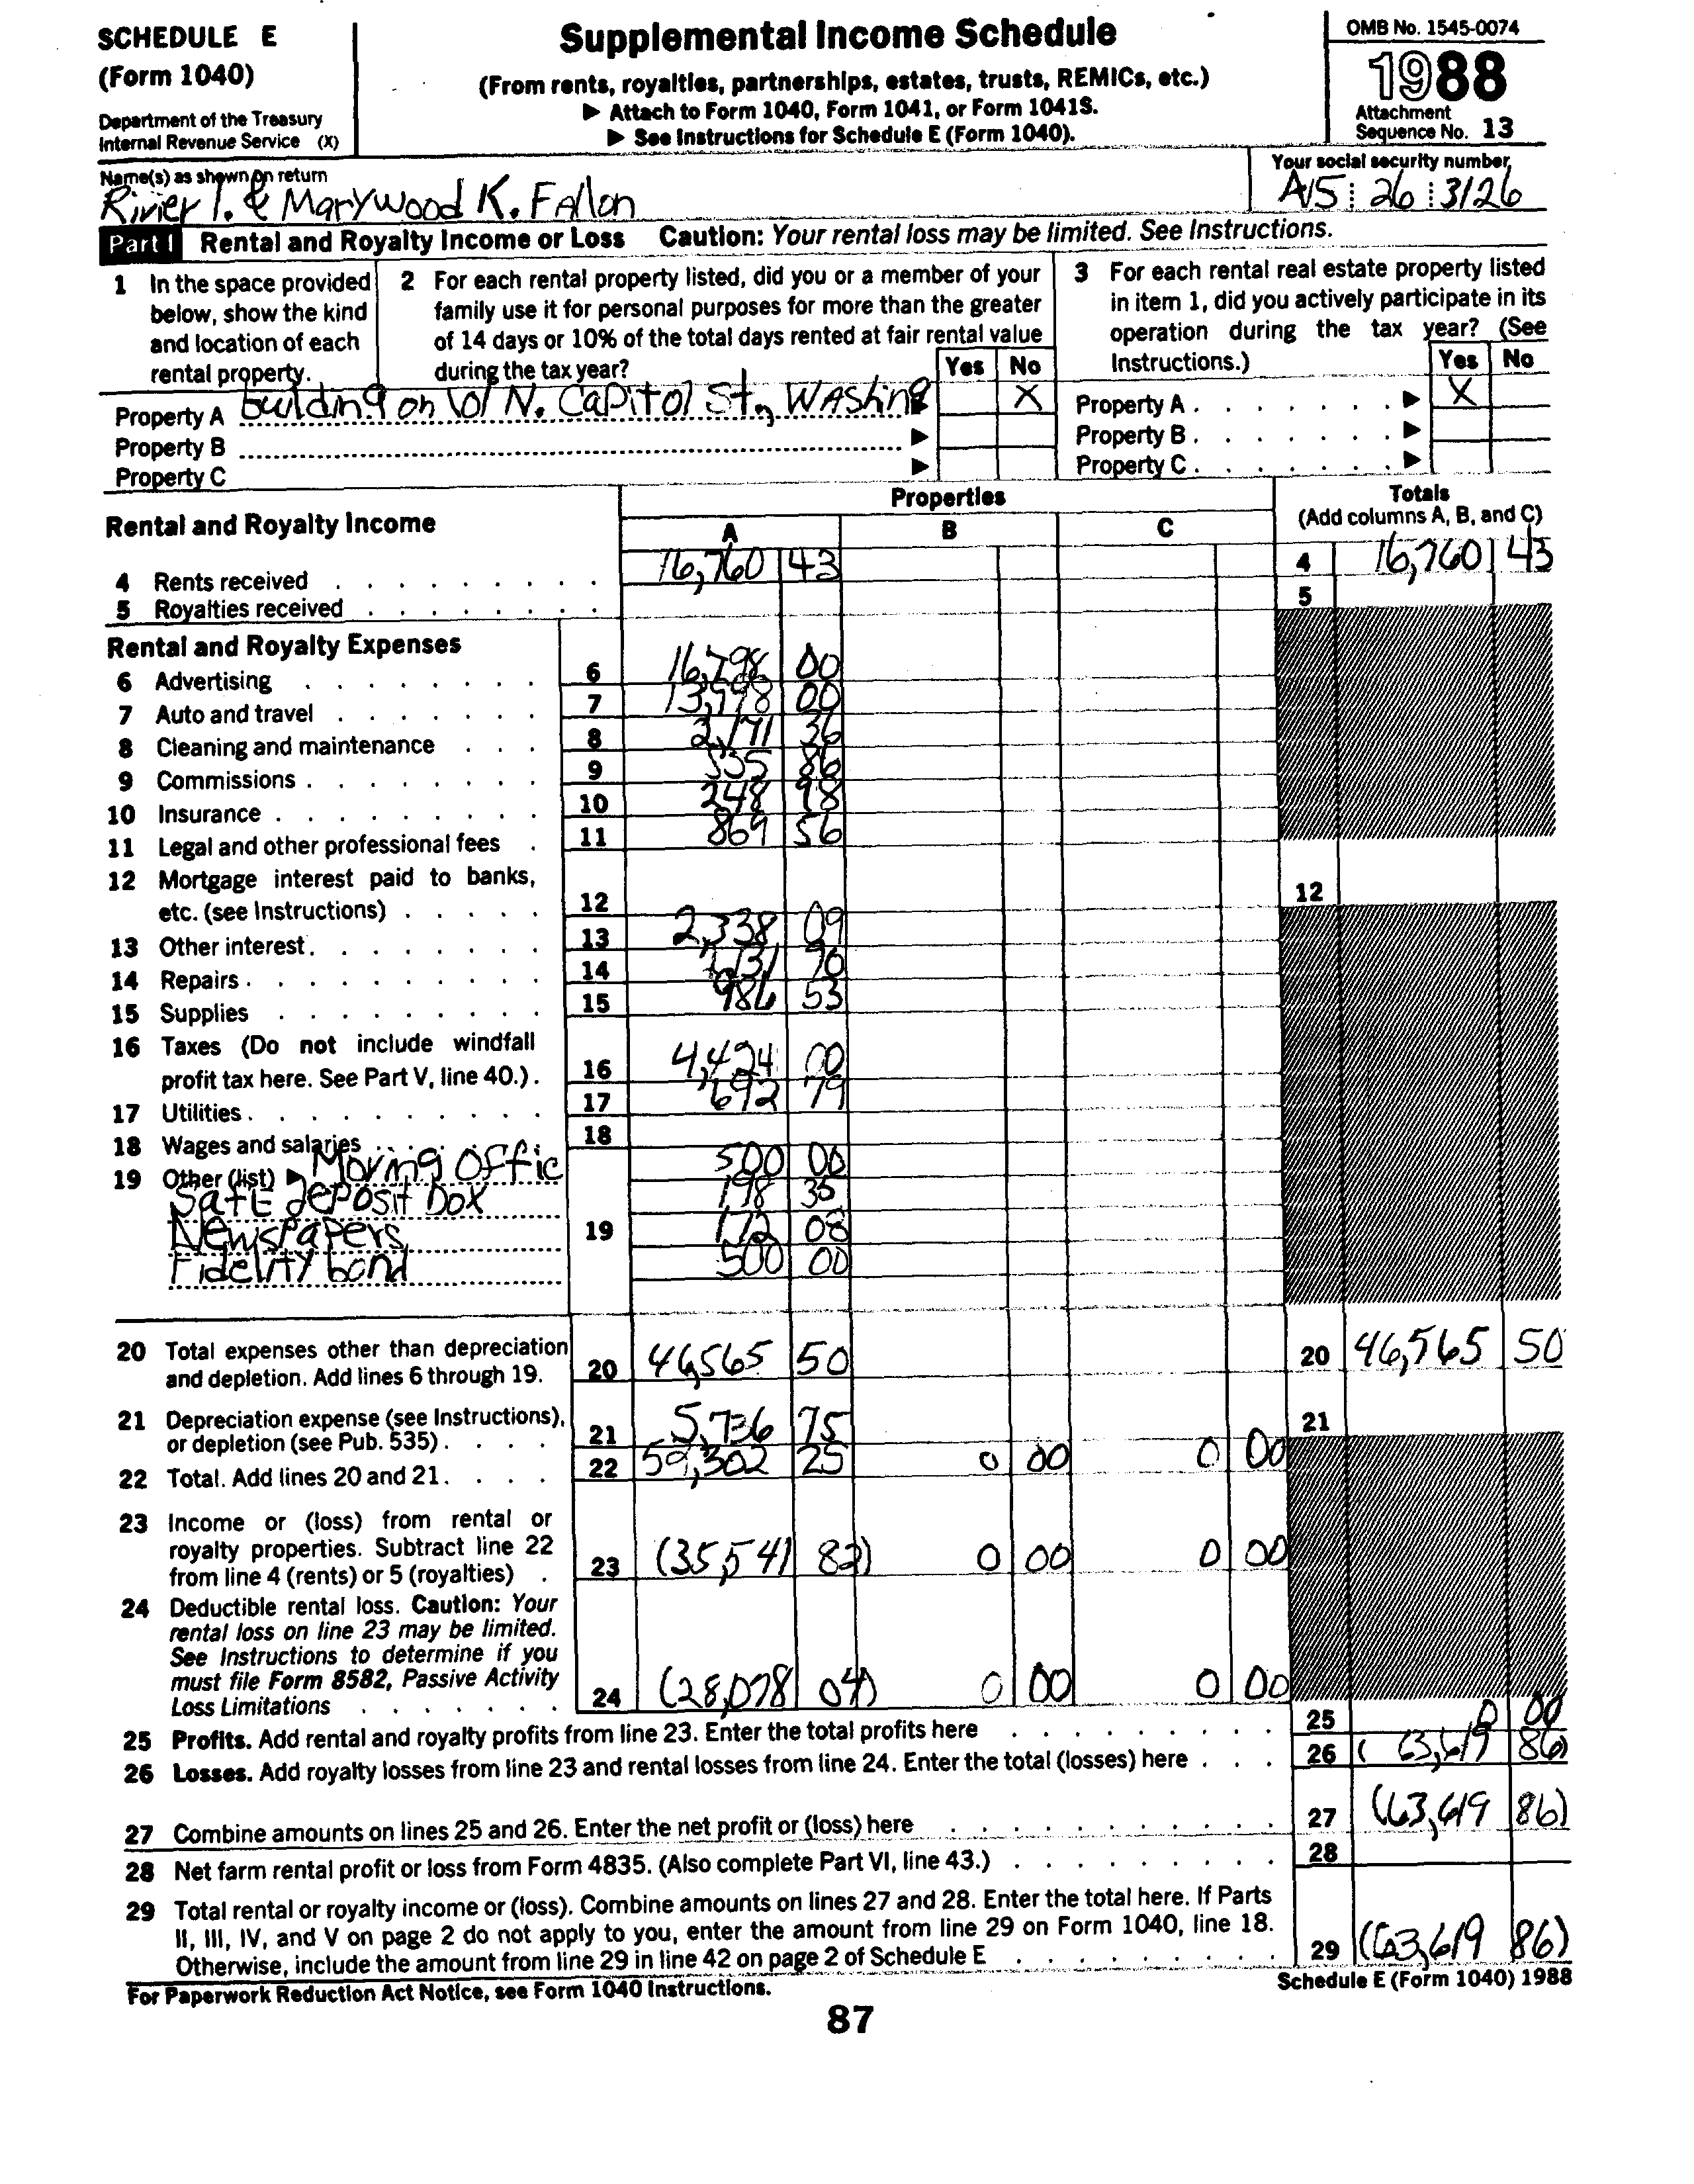 SCHEDULE E
(Form 1040)
Department of the Treasury
Internal Revenue Service (X)
Supplemental Income Schedule
(From rents, royalties, partnerships, estates, trusts, REMICs, etc.)
▶ Attach to Form 1040, Form 1041, or Form 1041S.
▶ See Instructions for Schedule E (Form 1040).
OMB No. 1545-0074
1988
Attachment
Sequence No. 13
Name(s) as shown on return
Rivier I. & Marywood K. Fallon
Your social security number
26 3126
Part I Rental and Royalty Income or Loss Caution: Your rental loss may be limited. See Instructions.
1 In the space provided
below, show the kind
and location of each
rental property.
2 For each rental property listed, did you or a member of your
family use it for personal purposes for more than the greater
of 14 days or 10% of the total days rented at fair rental value
during the tax year?
Yes No
3 For each rental real estate property listed
in item 1, did you actively participate in its
operation during the tax year? (See
Instructions.)
Yes No
Property A building on 101 N. Capitol St., Washing ▶ X
Property B ▶
Property C ▶
Property A . . . . . . . ▶ X
Property B . . . . . . . ▶
Property C . . . . . . . ▶
Rental and Royalty Income
Properties
A B C
Totals
(Add columns A, B, and C)
4 Rents received 16,760 43 4 16,760 43
5 Royalties received 5
Rental and Royalty Expenses
6 Advertising 6 16,798 00
7 Auto and travel 7 13,998 00
8 Cleaning and maintenance 8 36
9 Commissions 9 535 86
10 Insurance 10 248 98
11 Legal and other professional fees 11 869 56
12 Mortgage interest paid to banks,
etc. (see Instructions) 12 12
13 Other interest 13 2,338 09
14 Repairs 14
15 Supplies 15 986 53
16 Taxes (Do not include windfall
profit tax here. See Part V, line 40.) 16 4,424 00
17 Utilities 17 692 79
18 Wages and salaries 18
19 Other (list) ▶ Moving Offic 500 00
Safe deposit box 198 35
Newspapers 19 172 08
Fidelity bond 500 00
20 Total expenses other than depreciation
and depletion. Add lines 6 through 19. 20 46,565 50 20 46,565 50
21 Depreciation expense (see Instructions),
or depletion (see Pub. 535) 21 5,736 75 21
22 Total. Add lines 20 and 21. 22 59,302 25 0 00 0 00
23 Income or (loss) from rental or
royalty properties. Subtract line 22
from line 4 (rents) or 5 (royalties) 23 (35,541 82) 0 00 0 00
24 Deductible rental loss. Caution: Your
rental loss on line 23 may be limited.
See Instructions to determine if you
must file Form 8582, Passive Activity
Loss Limitations 24 (28,078 04) 0 00 0 00
25 Profits. Add rental and royalty profits from line 23. Enter the total profits here 25 0 00
26 Losses. Add royalty losses from line 23 and rental losses from line 24. Enter the total (losses) here 26 ( 63,619 86)
27 Combine amounts on lines 25 and 26. Enter the net profit or (loss) here 27 (63,619 86)
28 Net farm rental profit or loss from Form 4835. (Also complete Part VI, line 43.) 28
29 Total rental or royalty income or (loss). Combine amounts on lines 27 and 28. Enter the total here. If Parts
II, III, IV, and V on page 2 do not apply to you, enter the amount from line 29 on Form 1040, line 18.
Otherwise, include the amount from line 29 in line 42 on page 2 of Schedule E 29 (63,619 86)
For Paperwork Reduction Act Notice, see Form 1040 Instructions.
Schedule E (Form 1040) 1988
87